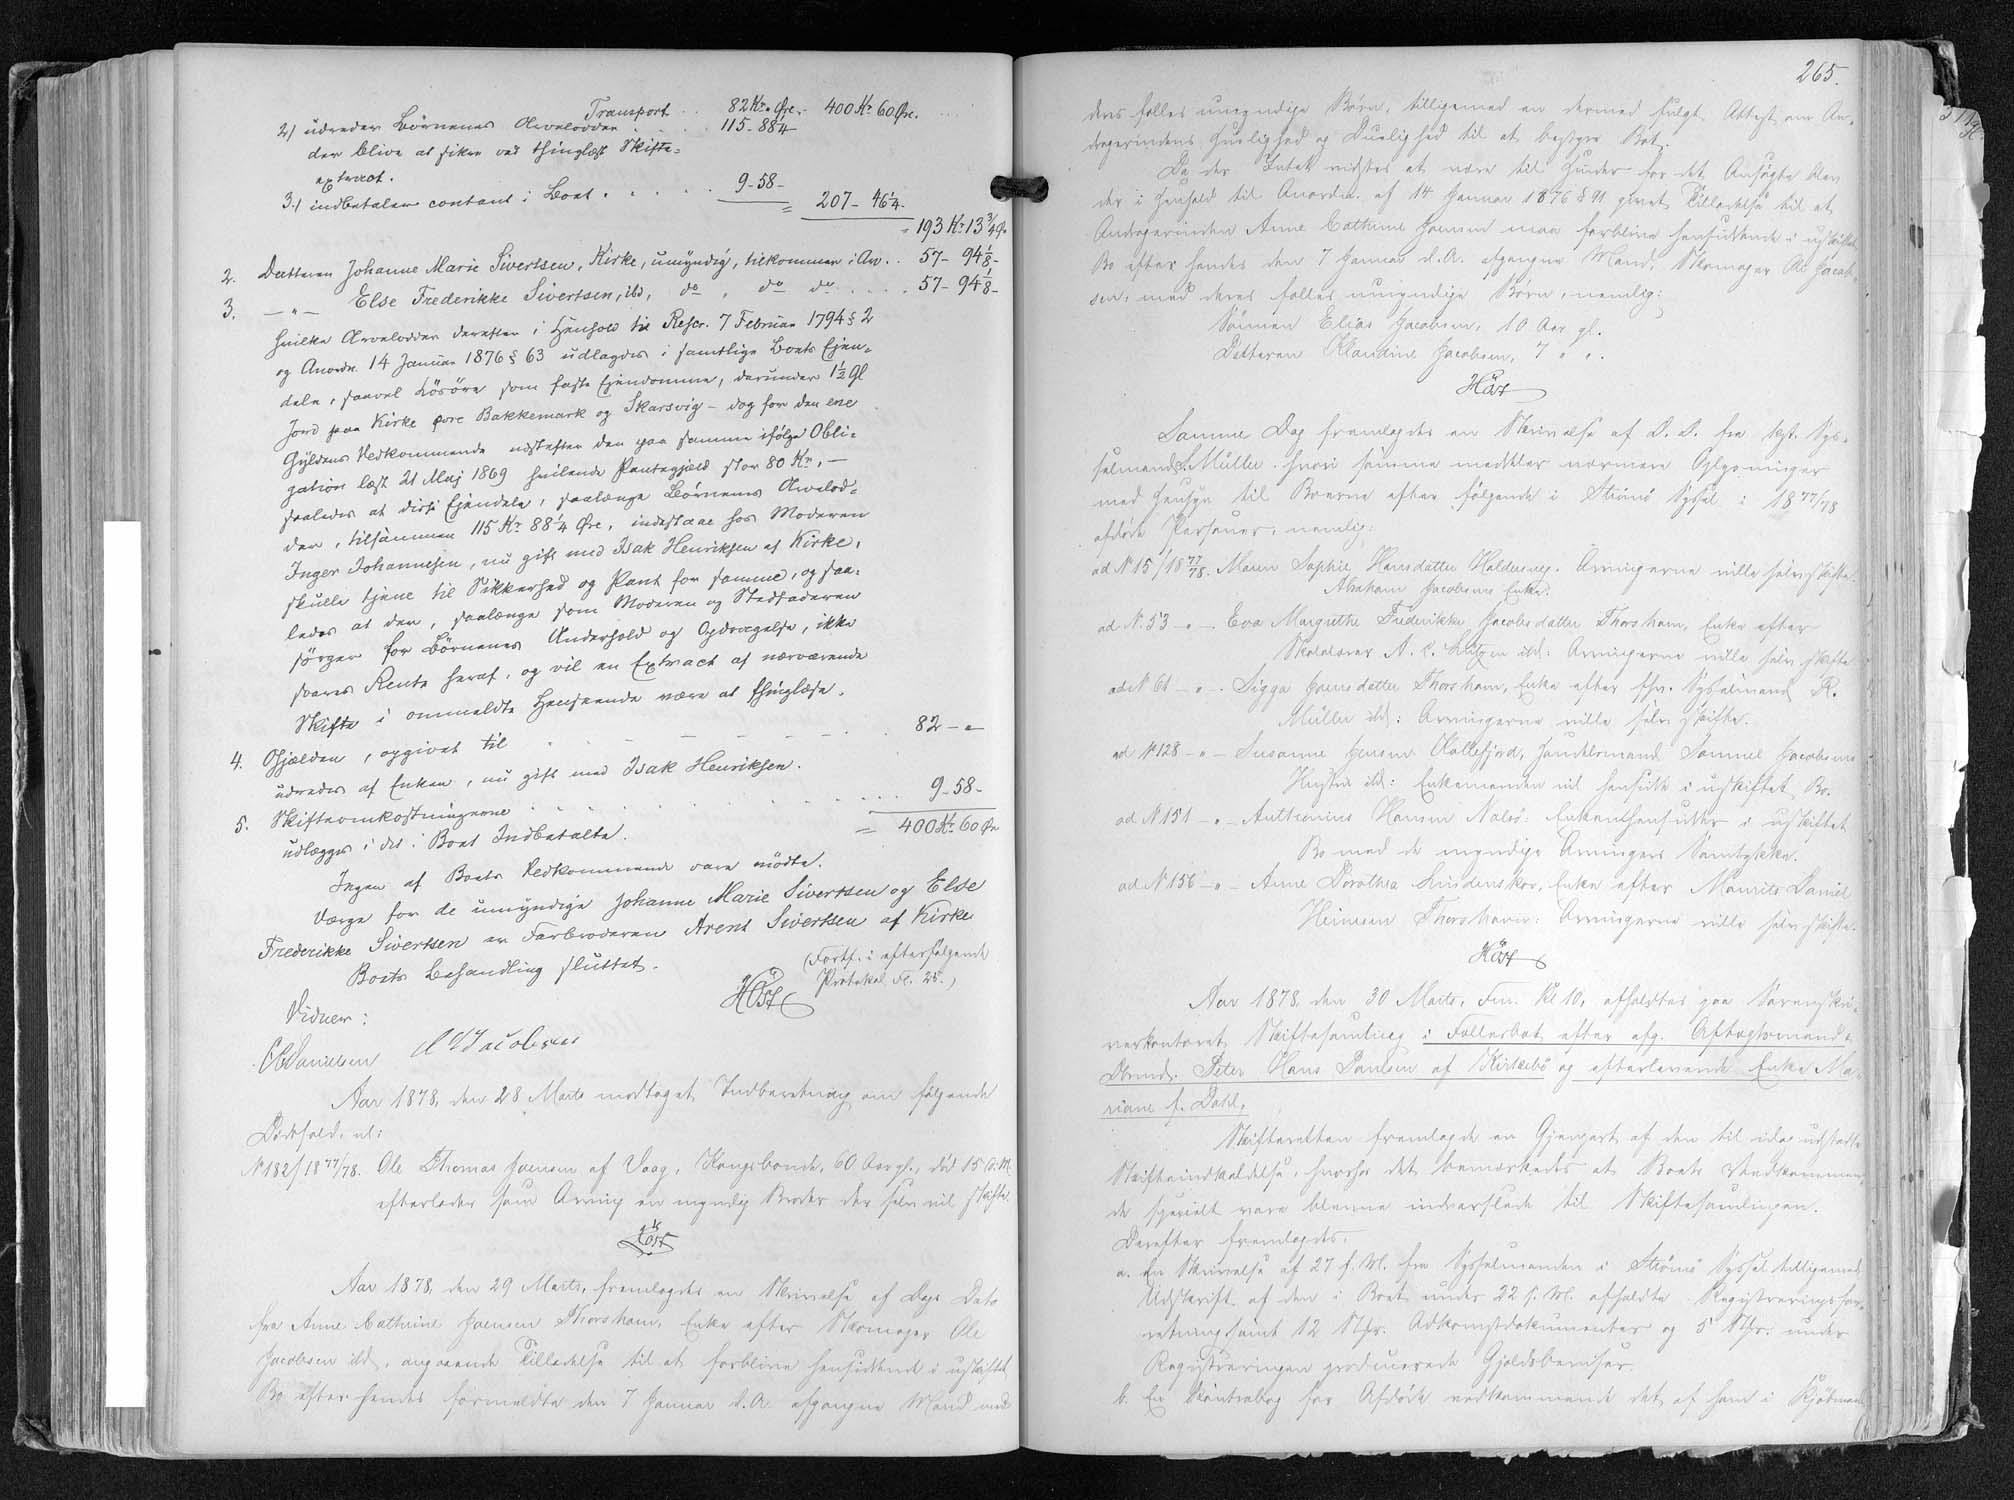 Transport . . 82 Kr. „ Øre. 400 Kr. 60 Øre.
2) udreder Børnenes Arvelodder . . . . 115 - 88¼
der blive at sikre ved thinglæst Skifte-
extract.
3.) indbetaler contant i Boet . . . . . . 9 - 58 -
= 207 - 46¼ -
= 193 Kr 13¾ Ø.
2. Datteren Johanne Marie Sivertsen, Kirke, umyndig, tilkommer i Arv . . 57 - 94⅛ -
3. — „ — Else Frederikke Sivertsen, ibd, do „ do do . . . . 57 - 94⅛ -
hvilke Arvelodder derefter i Henhold til Rescr. 7 Februar 1794 § 2
og Anordn. 14 Januar 1876 § 63 udlagdes i samtlige Boets Ejen-
dele, saavel Løsøre som faste Ejendomme, derunder 1½ Gl
Jord paa Kirke øvre Bakkemark og Skarsvig - dog for den ene
Gyldens Vedkommende næstefter den paa samme ifølge Obli-
gation læst 21 Maj 1869 hvilende Pantegjæld stor 80 Kr, —
saaledes at disse Ejendele, saalænge Børnenes Arvelod-
der, tilsammen 115 Kr 88¼ Øre, indestaae hos Moderen
Inger Johannesen, nu gift med Isak Henriksen af Kirke,
skulle tjene til Sikkerhed og Pant for samme, og saa-
ledes at der, saalænge som Moderen og Stedfaderen
sørger for Børnenes Underhold og Opdragelse, ikke
svares Rente heraf, og vil en Extract af nærværende
Skifte i ommeldte Henseende være at thinglæse.
4. Gjælden, opgivet til . . . . . . 82 — „ —
udredes af Enken, nu gift med Isak Henriksen.
5. Skifteomkostningerne . . . . . . . . . 9 - 58 -
udlægges i det i Boet Indbetalte. = 400 Kr. 60 Øre
Ingen af Boets Vedkommende vare mødte.
Værge for de umyndige Johanne Marie Sivertsen og Else
Frederikke Sivertsen er Farbroderen Arent Sivertsen af Kirke
Boets Behandling sluttet. (Forts. i efterfølgende
Høst Protokol Fl. 25.)
Vidner:
Danielsen Jacobsen
Aar 1878, den 28 Marts modtaget Indberetning om følgende
Dødsfald, nl:
N 182/18 77/78. Ole Thomas Joensen af Vaag, Kongsbonde, 60 Aar gl., død 15 d. M.
efterlader som Arving en myndig Broder der selv vil skifte.
Høst
Aar 1878, den 29 Marts, fremlagdes en Skrivelse af Dags Dato
fra Anne Cathrine Joensen Thorshavn, Enke efter Skomager Ole
Jacobsen ibd, angaaende Tilladelse til at forblive hensiddende i uskiftet
Bo efter hendes formeldte den 7 Januar d.A. afgangne Mand med
265.
deres fælles umyndige Børn, tilligemed en dermed fulgt Attest om An-
dragerindens Huslighed og Duelighed til at bestyre Boet.
Da der Intet vidstes at være til Hinder for det Ansøgte blev
der i Henhold til Anordn. af 14 Januar 1876 § 91 givet Tilladelse til at
Andragerinden Anne Cathrine Joensen maa forblive hensiddende i uskiftet
Bo efter hendes den 7 Januar d.A. afgangne Mand, Skomager Ole Jacob-
sen, med deres fælles umyndige Børn, nemlig:
Sønnen Elias Jacobsen, 10 Aar gl.
Datteren Klaudine Jacobsen, 7 „ „.
Høst
Samme Dag fremlagdes en Skrivelse af D. D. fra kst. Sys-
selmand Müller, hvori samme meddeler nærmere Oplysninger
med Hensyn til Boerne efter følgende i Strømø Syssel i 18 77/78
afdøde Personer, nemlig:
ad N 15/18 77/78. Maren Sophie Hansdatter Arvingerne ville selv skifte.
Abraham Jacobsens Enke.
ad N. 53 — „ — Eva Margrethe Frederikke Jacobsdatter Thorshavn, Enke efter
Skolelærer A. C. Lützen ibd: Arvingerne ville selv skifte
ad N 61 — „ — Sigga Joensdatter Thorshavn, Enke efter fhv. Sysselmand R.
Müller ibd: Arvingerne ville selv skifte.
ad N 128 — „ — Susanne Jensen Kollefjord, Handelsmand Samuel Jacobsens
Hustru ibd: Enkemanden vil hensidde i uskiftet Bo.
ad N 151 — „ — Anthonius Hansen Nolsø: Enken hensidder i uskiftet
Bo med de myndige Arvingers Samtykke.
ad N 156 — „ — Anne Dorothea Enke efter Mourits Daniel
Heinesen Thorshavn: Arvingerne ville selv skifte.
Høst
Aar 1878, den 30 Marts, Fm. Kl 10, afholdtes paa Sorenskri-
verkontoret Skiftesamling i Fællesboet efter afg. Aftægtsmand
Peter Hans Poulsen af Kirkebø og efterlevende Enke Ma-
riane f. Dahl.
Skifteretten fremlagde en Gjenpart af den til idag udstedte
Skifteindkaldelse, hvorhos det bemærkedes at Boets Vedkommen-
de specielt vare blevne indvarslede til Skiftesamlingen.
Derefter fremlagdes:
a. En Skrivelse af 27 f. M. fra Sysselmanden i Strømø Syssel tilligemed
Udskrift af den i Boet under 22 f. M. afholdte Registreringsfor-
retning samt 12 Stkr. Adkomstdokumenter og 5 Stkr. under
Registreringen producerede Gjældsbeviser.
b. En Kontrabog for Afdøde vedkommende det af ham i